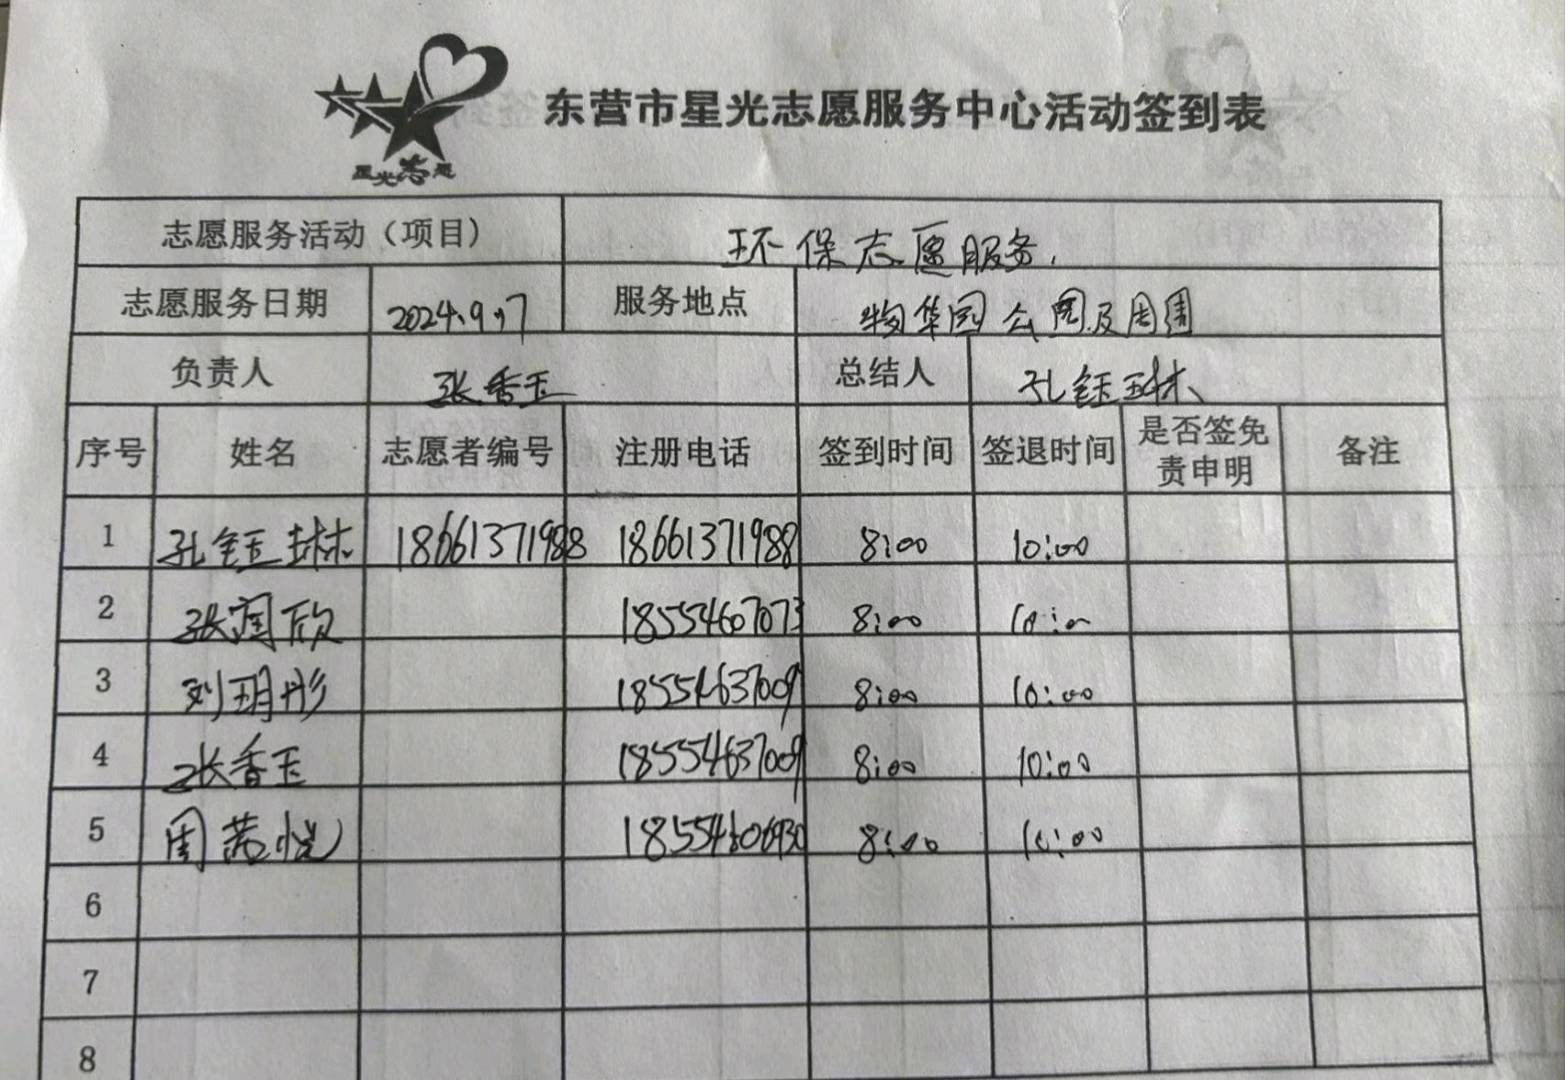 星光志愿
东营市星光志愿服务中心活动签到表
志愿服务活动（项目） 环保志愿服务
志愿服务日期 2024.9.7 服务地点 物华园公园及周围
负责人 张香玉 总结人 孔钰琳
序号 姓名 志愿者编号 注册电话 签到时间 签退时间 是否签免责申明 备注
1 孔钰琳 18661371988 18661371988 8:00 10:00
2 张闺欣 18554607073 8:00 10:00
3 刘玥彤 18554637009 8:00 10:00
4 张香玉 18554637009 8:00 10:00
5 周茜悦 18554606930 8:00 10:00
6
7
8